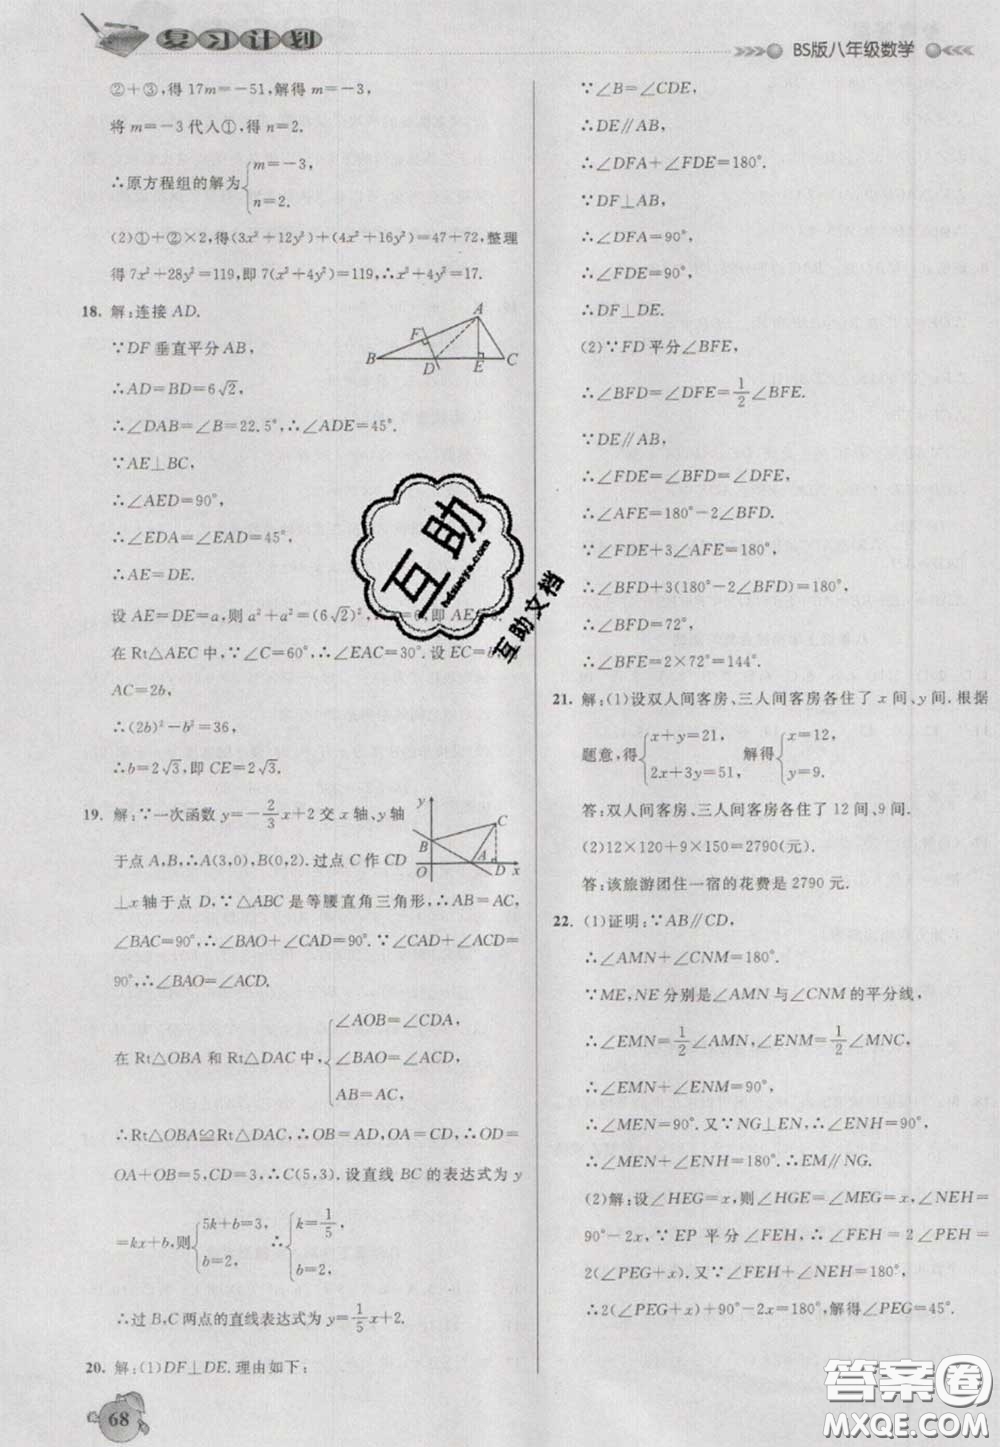 复习计划
BS版八年级数学
②+③,得17m=-51,解得m=-3,
将m=-3代入①,得n=2.
∴原方程组的解为{m=-3,
n=2.
(2)①+②×2,得(3x²+12y²)+(4x²+16y²)=47+72,整理
得7x²+28y²=119,即7(x²+4y²)=119,∴x²+4y²=17.
18. 解:连接AD.
∵DF垂直平分AB,
∴AD=BD=6√2,
∴∠DAB=∠B=22.5°,∴∠ADE=45°.
∵AE⊥BC,
∴∠AED=90°,
∴∠EDA=∠EAD=45°,
∴AE=DE.
设AE=DE=a,则a²+a²=(6√2)²,
=6,即AE
在Rt△AEC中,∵∠C=60°,∴∠EAC=30°.设EC=b
AC=2b,
∴(2b)²-b²=36,
∴b=2√3,即CE=2√3.
A
F
B
D
E
C
19. 解:∵一次函数y=-2/3x+2交x轴、y轴
于点A,B,∴A(3,0),B(0,2).过点C作CD
⊥x轴于点D,∵△ABC是等腰直角三角形,
∠BAC=90°,∴∠BAO+∠CAD=90°.又∵∠CAD+∠ACD=
90°,∴∠BAO=∠ACD.
y
C
B
O
A
D
x
在Rt△OBA和Rt△DAC中,{∠AOB=∠CDA,
∠BAO=∠ACD,
AB=AC,
∴Rt△OBA≌Rt△DAC,∴OB=AD,OA=CD,∴OD=
OA+OB=5,CD=3,∴C(5,3).设直线BC的表达式为y
=kx+b,则{5k+b=3,
b=2.
∴{k=1/5,
b=2.
∴过B,C两点的直线表达式为y=1/5x+2.
20. 解:(1)DF⊥DE.理由如下:
∵∠B=∠CDE,
∴DE∥AB,
∴∠DFA+∠FDE=180°.
∵DF⊥AB,
∴∠DFA=90°,
∴∠FDE=90°,
∴DF⊥DE.
(2)∵FD平分∠BFE,
∴∠BFD=∠DFE=1/2∠BFE.
∵DE∥AB,
∴∠FDE=∠BFD=∠DFE,
∴∠AFE=180°-2∠BFD.
∵∠FDE+3∠AFE=180°,
∴∠BFD+3(180°-2∠BFD)=180°,
∴∠BFD=72°,
∴∠BFE=2×72°=144°.
21. 解:(1)设双人间客房、三人间客房各住了x间、y间.根据
题意,得{x+y=21,
2x+3y=51,
解得{x=12,
y=9.
答:双人间客房、三人间客房各住了12间、9间.
(2)12×120+9×150=2790(元).
答:该旅游团住一宿的花费是2790元.
22. (1)证明:∵AB∥CD,
∴∠AMN+∠CNM=180°.
∵ME,NE分别是∠AMN与∠CNM的平分线,
∴∠EMN=1/2∠AMN,∠ENM=1/2∠MNC,
∴∠EMN+∠ENM=90°,
∴∠MEN=90°.又∵NG⊥EN,∴∠ENG=90°,
∴∠MEN+∠ENG=180°,∴EM∥NG.
(2)解:设∠HEG=x,则∠HGE=∠MEG=x,∠NEH=
90°-2x,∵EP平分∠FEH,∴∠FEH=2∠PEH=
2(∠PEG+x).又∵∠FEH+∠NEH=180°,
∴2(∠PEG+x)+90°-2x=180°,解得∠PEG=45°.
68
互助
hdzuoye.com
互助文档
答案圈
MXQE.COM